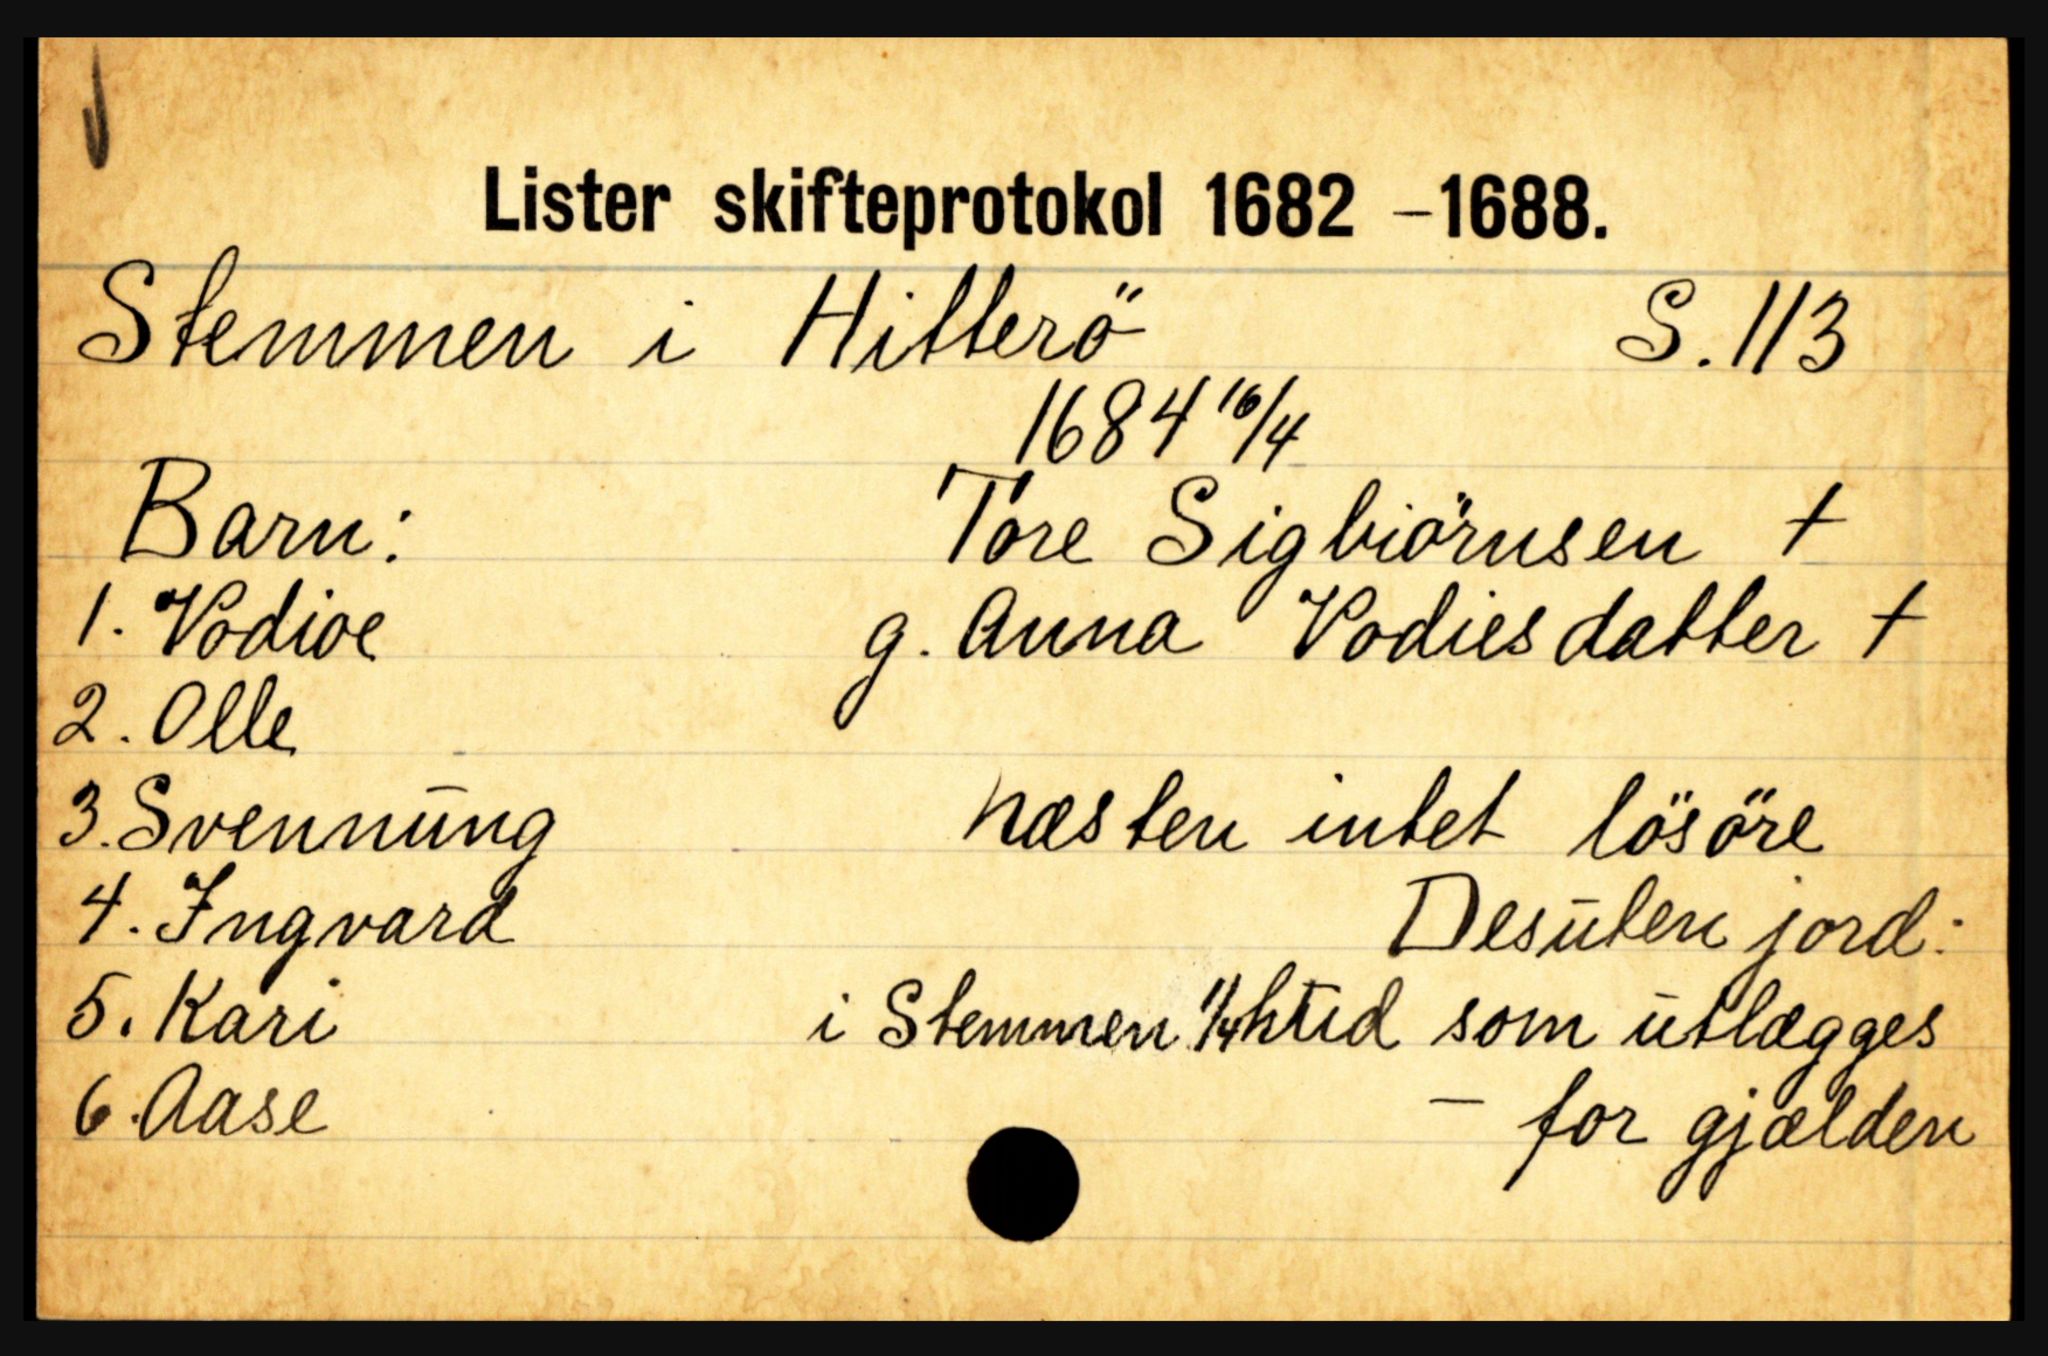 Lister skifteprotokol 1682 – 1688.
Stemmen i Hitterö S. 113
1684 16/4
Barn: Tore Sigbiörnsen †
1. Vodioe g. Anna Vodiesdatter †
2. Olle
3. Svennūng næsten intet lösöre
4. Ingvard Desūten jord:
5. Kari i Stemmen 1/4 hūd som ūtlægges
6. Aase — for gjælden